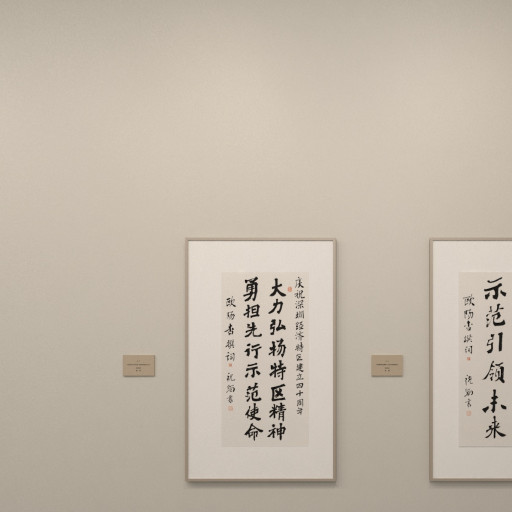 庆祝深圳经济特区建立四十周年
大力弘扬特区精神
勇担先行示范使命
欧阳杏撰词
示范引领未来
欧阳杏撰词